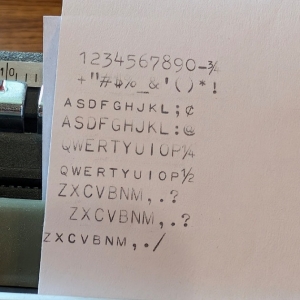 1234567890-¾
+"#$%_&'()*!
ASDFGHJKL;¢
ASDFGHJKL:@
QWERTYUIOP¼
QWERTYUIOP½
ZXCVBNM,.?
ZXCVBNM,.?
ZXCVBNM,./
10